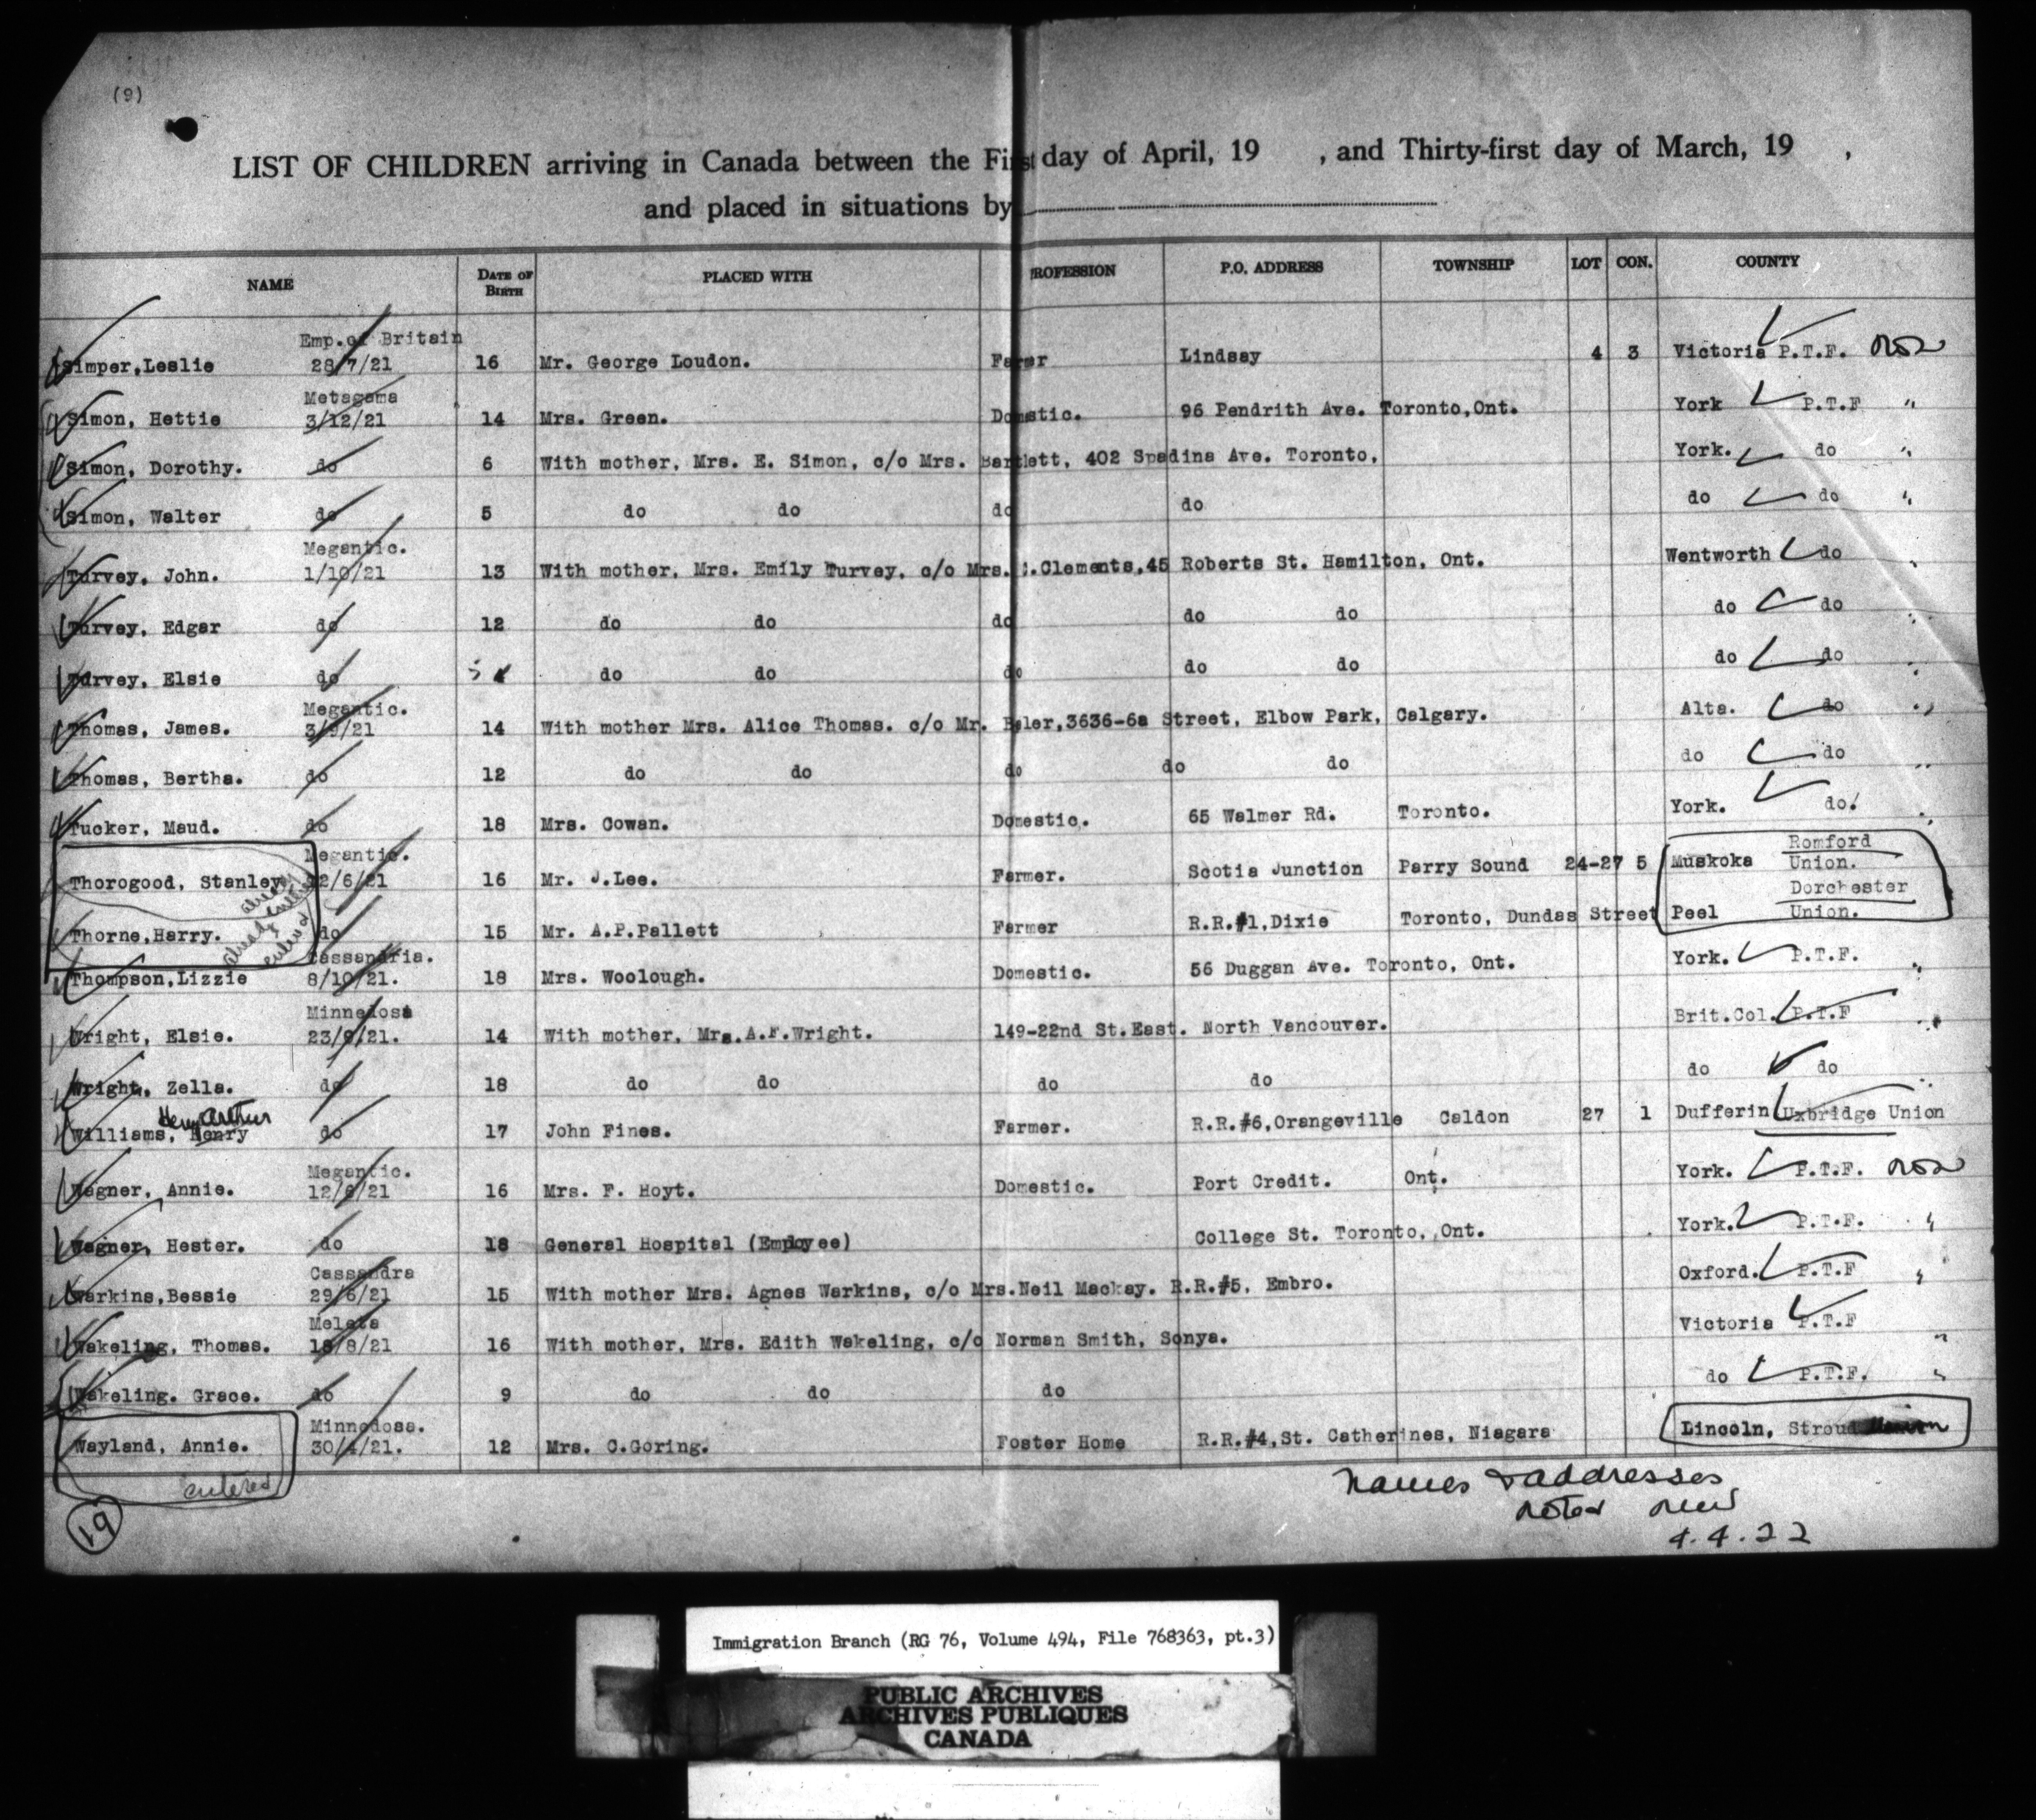 (9)
LIST OF CHILDREN arriving in Canada between the First day of April, 19 , and Thirty-first day of March, 19 ,
and placed in situations by
NAME DATE OF BIRTH PLACED WITH PROFESSION P.O. ADDRESS TOWNSHIP LOT CON. COUNTY
Emp.of Britain
Simper,Leslie 28/7/21 16 Mr. George Loudon. Farmer Lindsay 4 3 Victoria P.T.F.
Metagama
Simon, Hettie 3/12/21 14 Mrs. Green. Domestic. 96 Pendrith Ave. Toronto,Ont. York P.T.F "
Simon, Dorothy. do 6 With mother, Mrs. E. Simon, c/o Mrs. Bartlett, 402 Spadina Ave. Toronto. York. do "
Simon, Walter do 5 do do do do do do "
Megantic.
Turvey, John. 1/10/21 13 With mother, Mrs. Emily Turvey, c/o Mrs. .Clements,45 Roberts St. Hamilton, Ont. Wentworth do "
Turvey, Edgar do 12 do do do do do do do "
Turvey, Elsie do do do do do do do do "
Megantic.
Thomas, James. 3/9/21 14 With mother Mrs. Alice Thomas. c/o Mr. 3636-6a Street, Elbow Park, Calgary. Alta. do "
Thomas, Bertha. do 12 do do do do do do do "
Tucker, Maud. do 18 Mrs. Cowan. Domestic. 65 Walmer Rd. Toronto. York. do. "
Megantic. Romford
Thorogood, Stanley 2/6/21 16 Mr. J.Lee. Farmer. Scotia Junction Parry Sound 24-27 5 Muskoka Union.
already entered
Dorchester
Thorne,Harry. do 15 Mr. A.P.Pallett Farmer R.R.#1,Dixie Toronto, Dundas Street Peel Union.
already entered
Cassandria.
Thompson,Lizzie 8/10/21. 18 Mrs. Woolough. Domestic. 56 Duggan Ave. Toronto, Ont. York. P.T.F. "
Minnedosa
Wright, Elsie. 23/9/21. 14 With mother, Mrs.A.F.Wright. 149-22nd St.East. North Vancouver. Brit.Col. P.T.F "
Wright, Zella. do 18 do do do do do do "
Henry Arthur
Williams, Henry do 17 John Fines. Farmer. R.R.#6,Orangeville Caldon 27 1 Dufferin Uxbridge Union
Megantic.
Wagner, Annie. 12/6/21 16 Mrs. F. Hoyt. Domestic. Port Credit. Ont. York. P.T.F.
Wagner, Hester. do 18 General Hospital (Employee) College St. Toronto, Ont. York. P.T.F. "
Cassandra
Warkins,Bessie 29/6/21 15 With mother Mrs. Agnes Warkins, c/o Mrs.Neil Mackay. R.R.#5, Embro. Oxford. P.T.F "
Melita
18/8/21
Wakeling, Thomas. 16 With mother, Mrs. Edith Wakeling, c/o Norman Smith, Sonya. Victoria P.T.F "
Wakeling. Grace. do 9 do do do do P.T.F. "
Minnedosa.
Wayland, Annie. 30/4/21. 12 Mrs. C.Goring. Foster Home R.R.#4,St. Catherines, Niagara Lincoln, Stroud Union
entered
19
Names & addresses
noted
4.4.22
Immigration Branch (RG 76, Volume 494, File 768363, pt.3)
PUBLIC ARCHIVES
ARCHIVES PUBLIQUES
CANADA